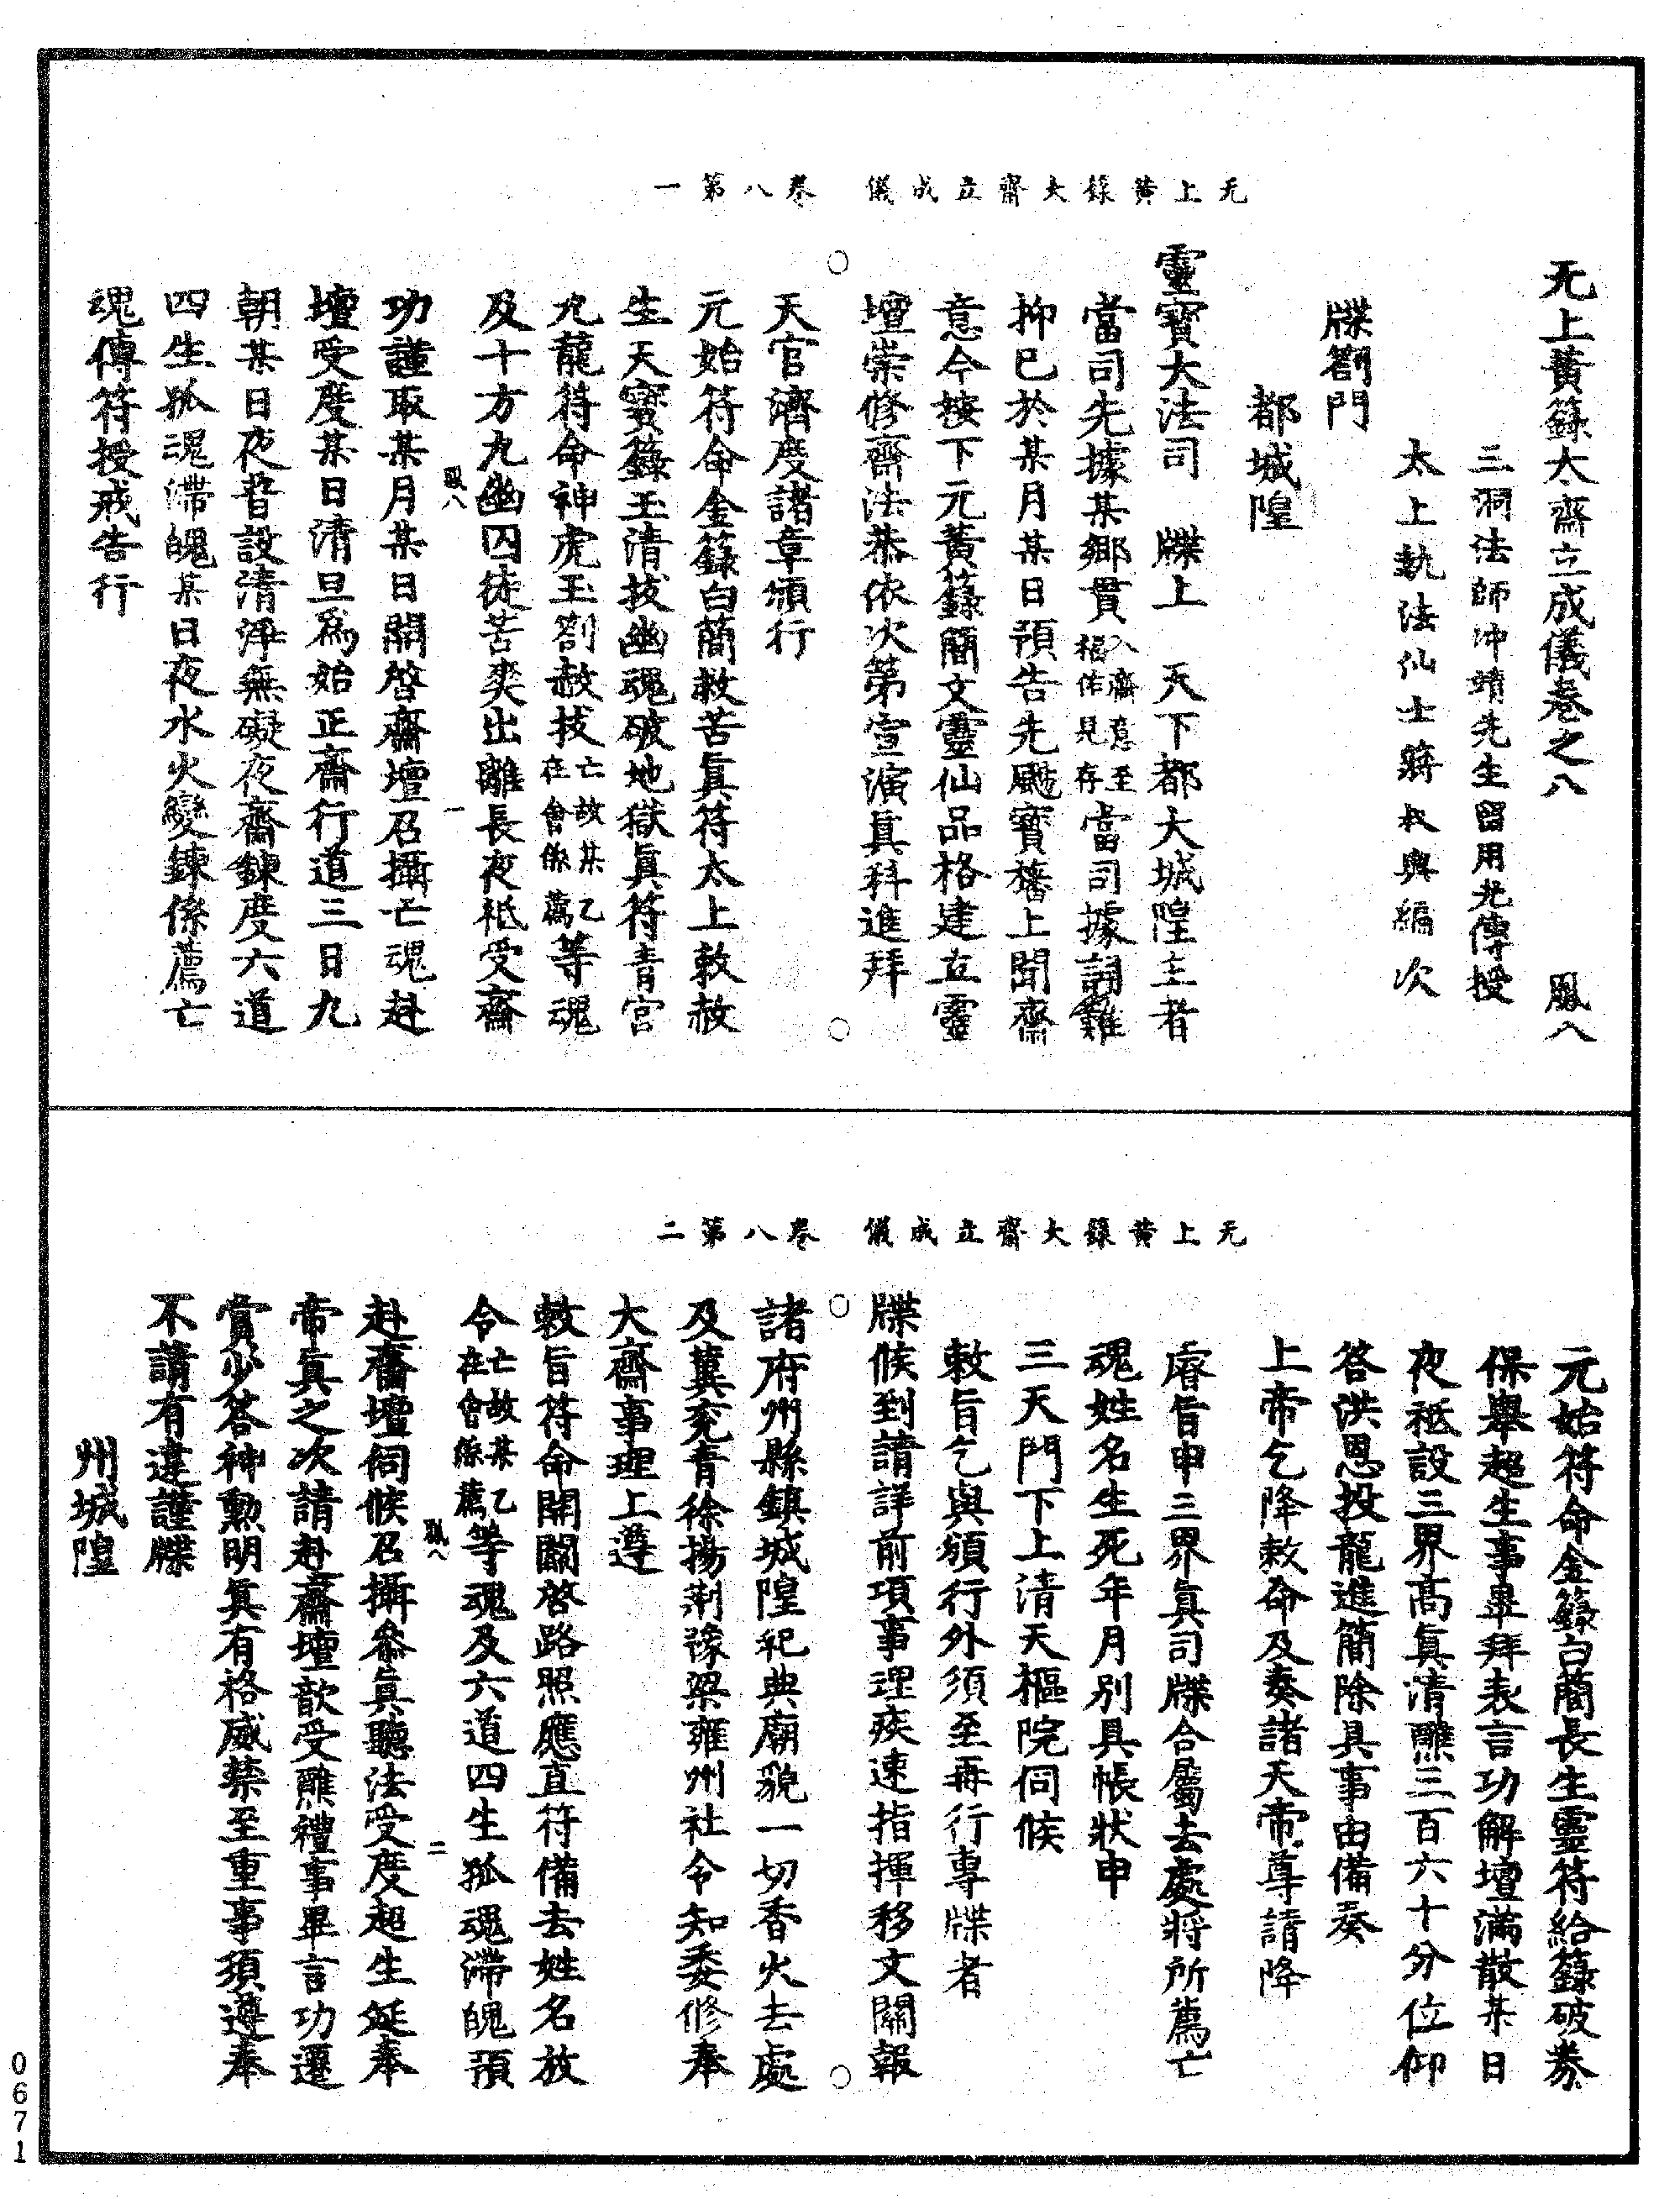 无上黃籙大齋立成儀　卷八第一
无上黃籙大齋立成儀卷之八　鳳八
三洞法師沖靖先生留用光傳授
太上執法仙士蔣叔輿編次
牒劄門
都城隍
靈寶大法司　牒上　天下都大城隍主者
當司先據某鄉貫入齋意至福佑見存當司據詞難
抑已於某月某日預告先颺寶旛上聞齋
意今按下元黃籙簡文靈仙品格建立靈
壇崇修齋法恭依次第宣演眞科進拜
天官濟度諸章頒行
元始符命金籙白簡救苦眞符太上敕赦
生天寶籙玉清拔幽魂破地獄眞符青宮
九龍符命神虎玉劄赦拔亡故某乙在會係薦等魂
及十方九幽囚徒苦爽出離長夜祇受齋
鳳八　一
功謹取某月某日開啓齋壇召攝亡魂赴
壇受度某日清旦爲始正齋行道三日九
朝某日夜普設清淨無礙夜齋鍊度六道
四生孤魂滯魄某日夜水火變鍊係薦亡
魂傳符授戒告行
无上黃籙大齋立成儀　卷八第二
元始符命金籙白簡長生靈符給籙破券
保舉超生事畢拜表言功解壇滿散某日
夜祇設三界高眞清醮三百六十分位仰
答洪恩投龍進簡除具事由備奏
上帝乞降敕命及奏諸天帝尊請降
睿旨申三界眞司牒合屬去處將所薦亡
魂姓名生死年月別具帳狀申
三天門下上清天樞院伺候
敕旨乞與頒行外須至再行專牒者
牒候到請詳前項事理疾速指揮移文關報
諸府州縣鎮城隍祀典廟貌一切香火去處
及冀兗青徐揚荆豫梁雍州社令知委修奉
大齋事理上遵
敕旨符命開關啓路照應直符備去姓名放
令亡故某乙在會係薦等魂及六道四生孤魂滯魄預
鳳八　二
赴齋壇伺候召攝參眞聽法受度超生延奉
帝眞之次請赴齋壇歆受醮禮事畢言功遷
賞少答神勳明眞有格威禁至重事須遵奉
不請有違謹牒
州城隍
0671